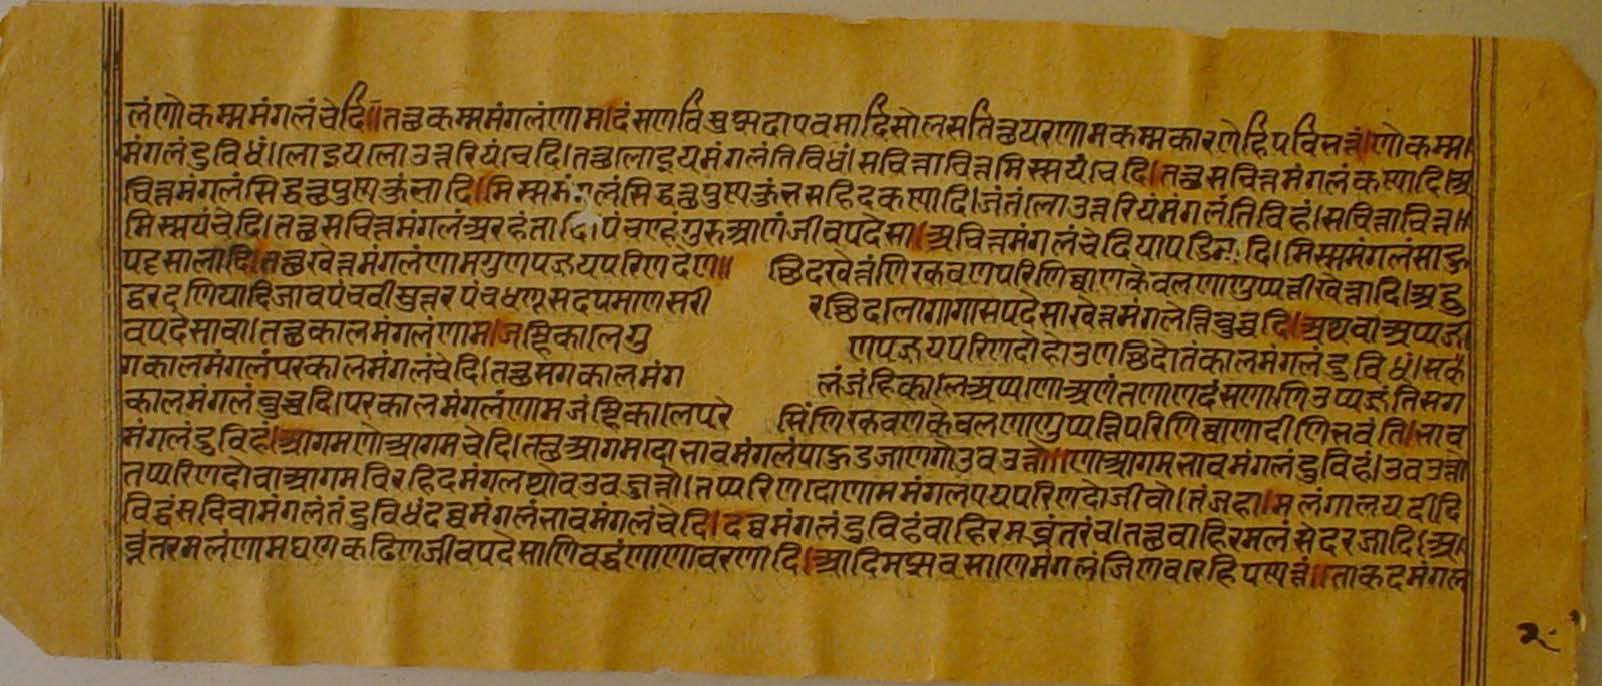 लंणोकम्ममंगलंचेदि॥तच्छकम्ममंगलंणाम।दंसणविसुज्झदापवमादिसोलसतिच्छयरणामकम्मकारणेहिपविभत्तं।णोकम्म।
मंगलंदुविधं।लोइय।लोउत्तरियंचदि।तच्छलोइयमंगलंतिविधं।सचित्ताचित्तमिस्सयंचदि।तच्छसचित्तमंगलंकस्मादि।अ
चित्तमंगलंसिद्धच्छपुण्णकुंभादि।मिस्समंगलंसिद्धच्छपुण्णकुंभसहिदकस्मादि।जंतंलोउत्तरियंमंगलंतिविहं।सचित्ताचित्त॥
मिस्सयंचेदि।तच्छसचित्तमंगलंअरहंतादि।पंचण्हंगुरुआणंजीवपदेसा।अचित्तमंगलंचेदियापडिमादि।मिस्समंगलंसाहु
पट्टसालादि।तच्छखेत्तमंगलंणामगुणपज्जयपरिणदेण॥ च्छिदखेत्तंणिरकवणपरिणिव्वाणकेवलणाणुप्पत्तीखेत्तादि।अहु
द्वरदणियादिजावपंचवीसुत्तरपंचधणूसदपमाणसरी रच्छिदालोगागासपदेसाखेत्तमंगलेत्तिवुच्चदि।अथवाअप्पज
वपदेसावा।तच्छकालमंगलंणाम।जम्हिकालेगु णपज्जयपरिणदोहोउणच्छिदोतंकालमंगलंदुविधं।सक
गकालमंगलंपरकालमंगलंचेदि।तच्छसगकालमंग लंजंहिकालेअप्पाणोअणंतणाणदंसणाणिउप्पज्जंतिसग
कालमंगलंवुच्चदि।परकालमंगलंणामजंम्हिकालेपरे सिंणिरकवणकेवलणाणुप्पत्तिपरिणिव्वाणादीणिभवंति।भाव
मंगलंदुविहं।आगमणोआगमचेदि।तच्छआगमदोभावमंगलंपाहुडजाणगोउवउत्तो॥णोआगमभावमंगलंदुविहं।उवउत्तो
तप्परिणदोवाआगमविरहिदमंगलच्छोवउवजुत्तो।तप्परिणदोणाममंगलपयपरिणदोजीवो।तंजहा।मलंगालयदीदि
विद्धंसदिवामंगलंतंदुविधंदव्वमंगलंभावमंगलंचेदि।दव्वमंगलंदुविहंवाहिरमब्भंतरंच।तच्छवाहिरमलंसेदरजादि।अ
ब्भंतरमलंणामघणकढिणजीवपदेसाणिवद्धंणाणावरणादि।आदिमज्झवसाणेमंगलंजिणवरेहिपण्णत्तं॥ताकदमंगल
२